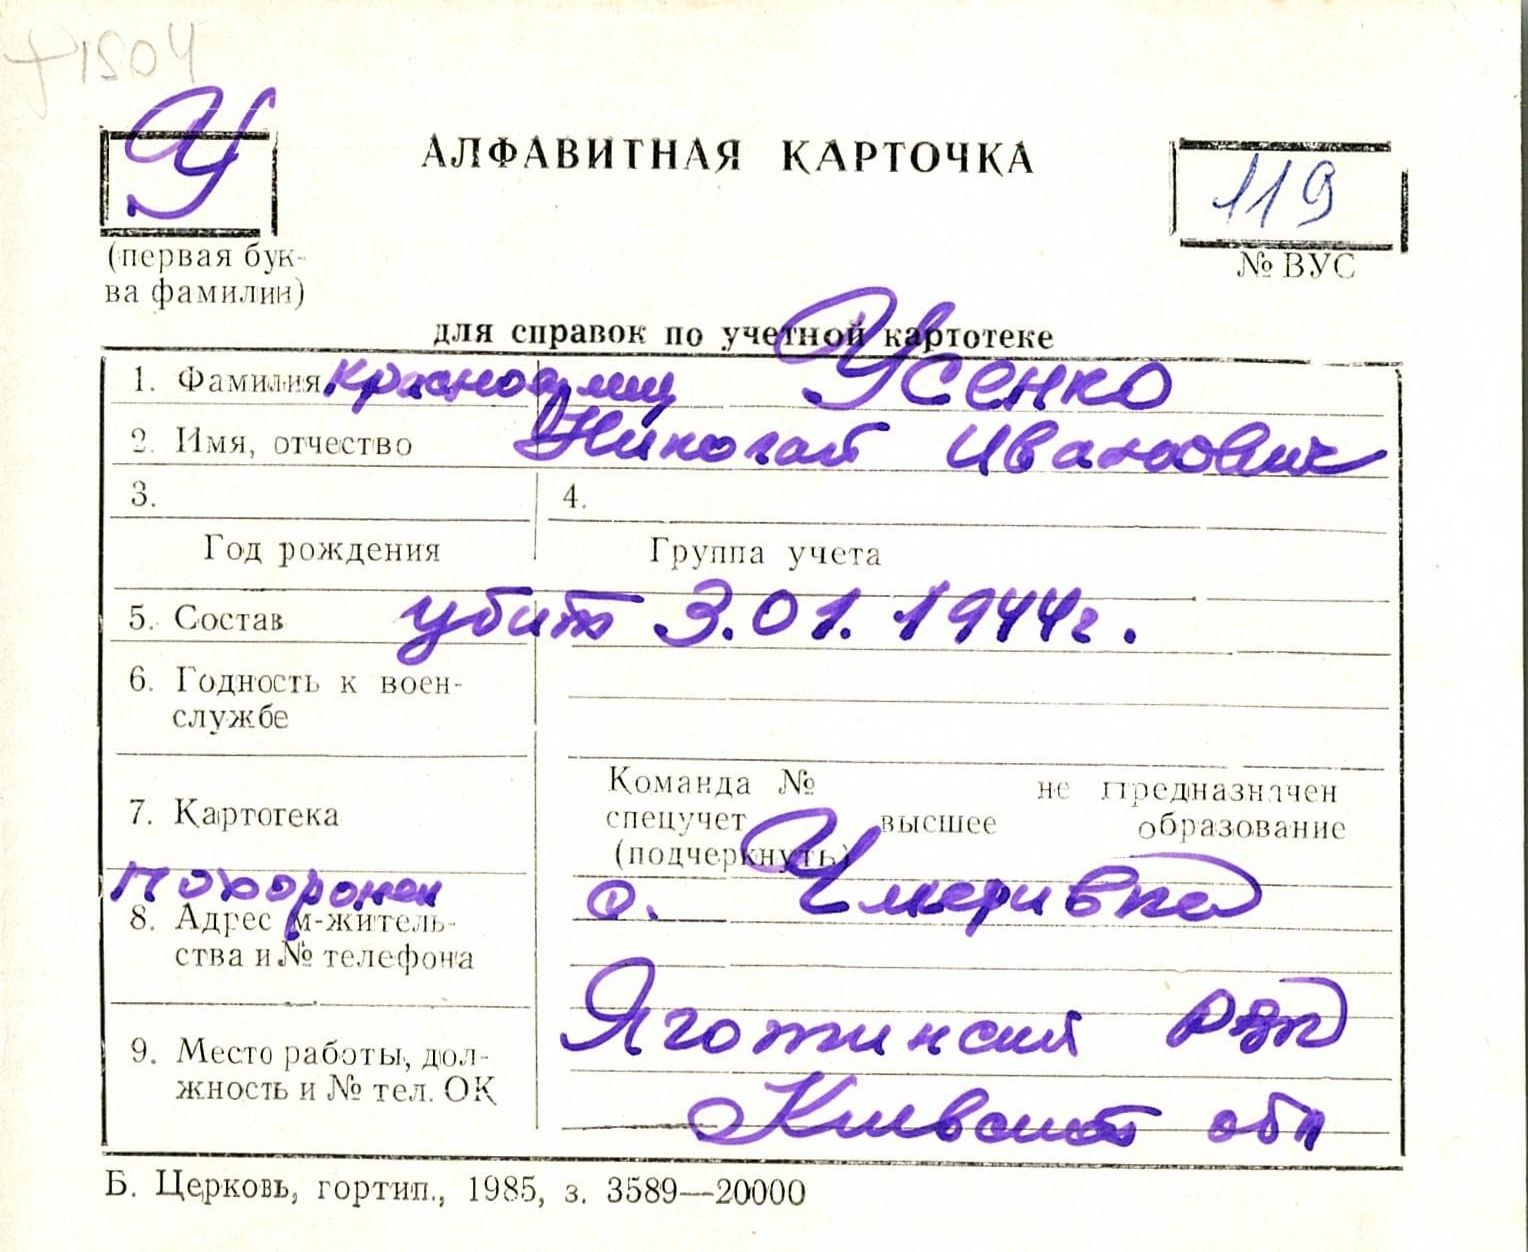 1504
У
АЛФАВИТНАЯ КАРТОЧКА
119
(первая бук-
ва фамилии)
№ ВУС
для справок по учетной картотеке
1. Фамилия красноармц Усенко
2. Имя, отчество Николай Иванович
3.
4.
Год рождения
Группа учета
5. Состав убит 3.01.1944г.
6. Годность к воен-
службе
7. Картотека
Команда № не предназначен
спецучет высшее образование
(подчеркнуть)
Похоронен
8. Адрес м-житель-
ства и № телефона
с.
Яготинский
9. Место работы, дол-
жность и № тел. ОК
Киевской обл
Б. Церковь, гортип., 1985, з. 3589—20000